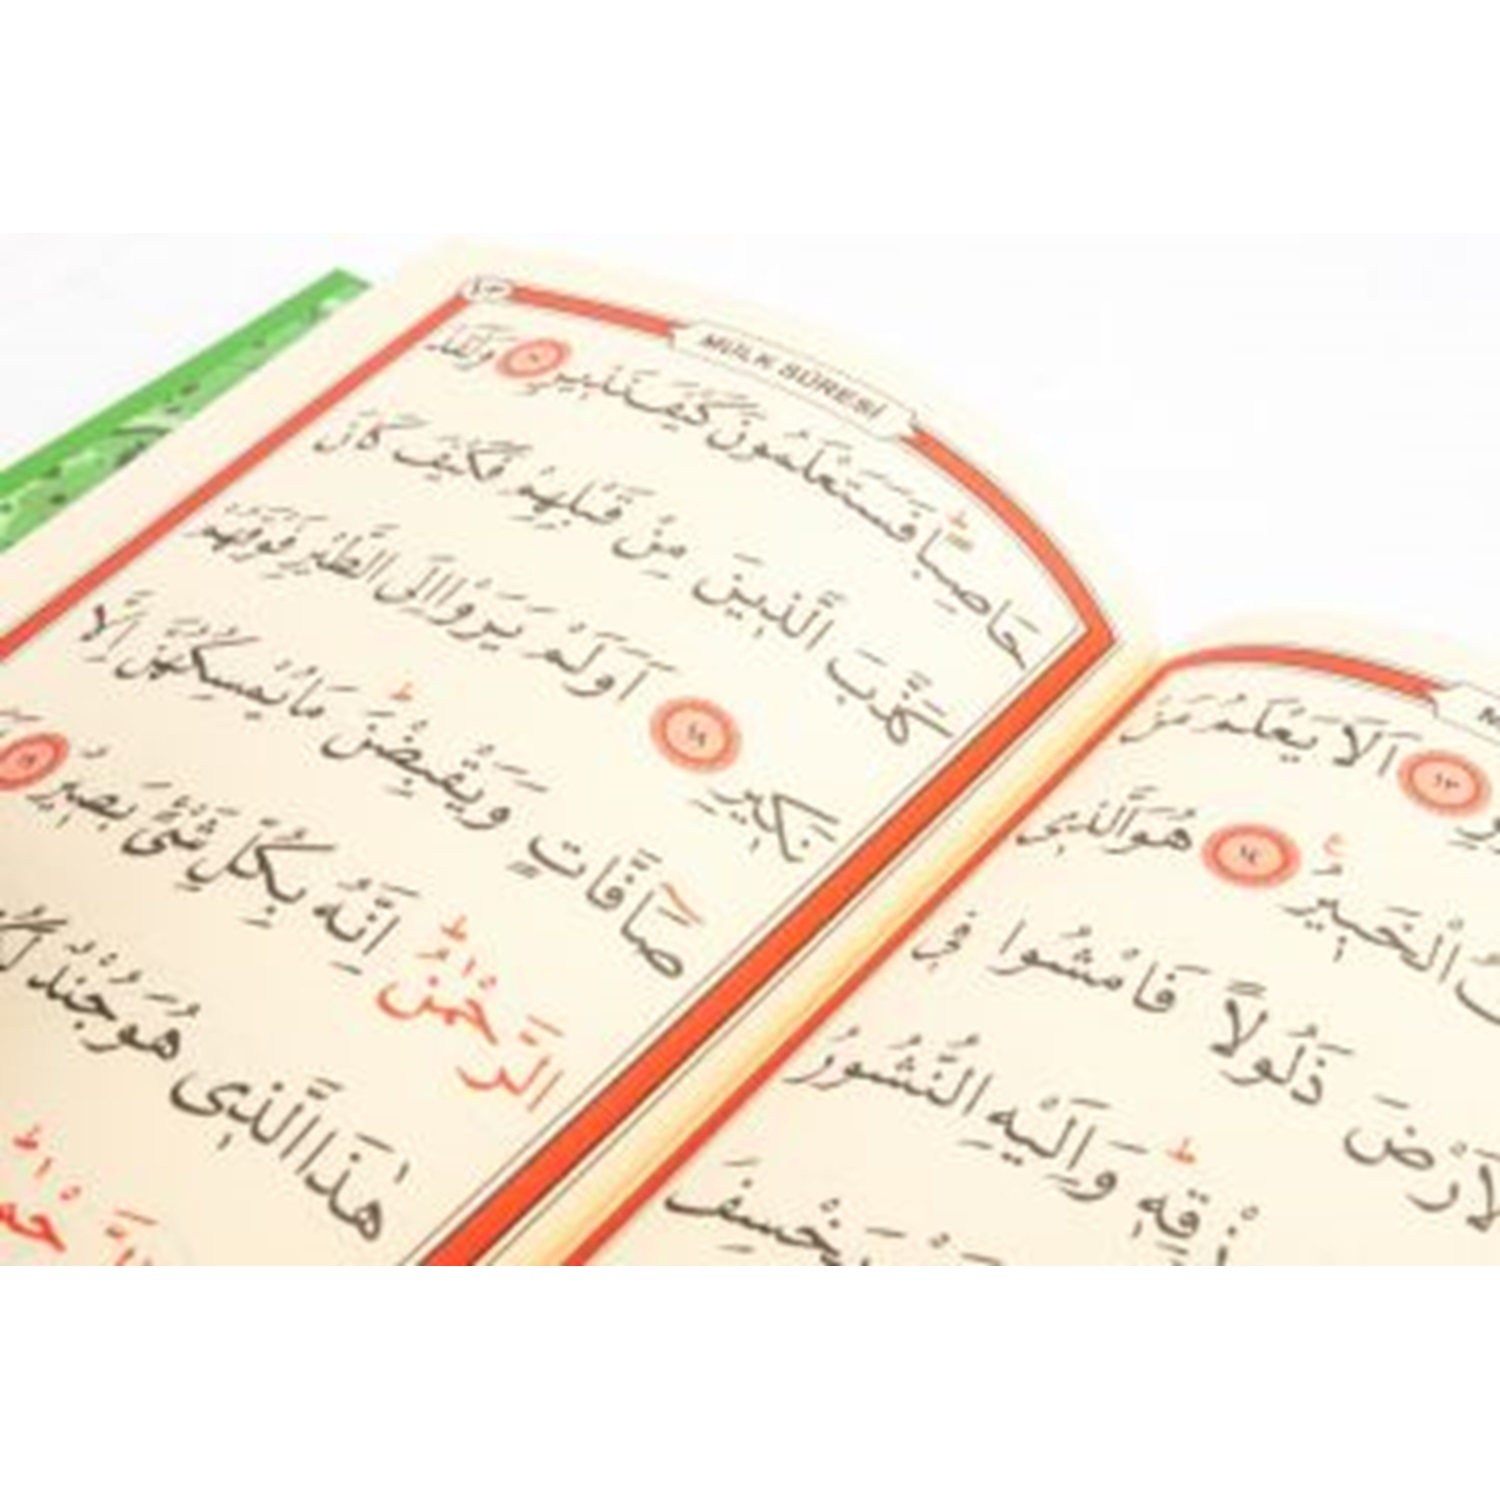 ١٣ اَلَا يَعْلَمُ مَنْ
الْخَب۪يرُ ١٤ هُوَ الَّذ۪ي
ذَلُولًا فَامْشُوا ف۪ي
وَاِلَيْهِ النُّشُورُ
يَخْسِفَ
MÜLK SÛRESİ
حَاصِبًاۜ فَسَتَعْلَمُونَ كَيْفَ نَذ۪يرِ ١٧ وَلَقَدْ
كَذَّبَ الَّذ۪ينَ مِنْ قَبْلِهِمْ فَكَيْفَ كَانَ
نَك۪يرِ ١٨ اَوَلَمْ يَرَوْا اِلَى الطَّيْرِ فَوْقَهُمْ
صَٓافَّاتٍ وَيَقْبِضْنَۜ مَا يُمْسِكُهُنَّ اِلَّا
الرَّحْمٰنُۜ اِنَّهُ بِكُلِّ شَيْءٍ بَص۪يرٌ ١٩
هٰذَا الَّذ۪ي هُوَ جُنْدٌ